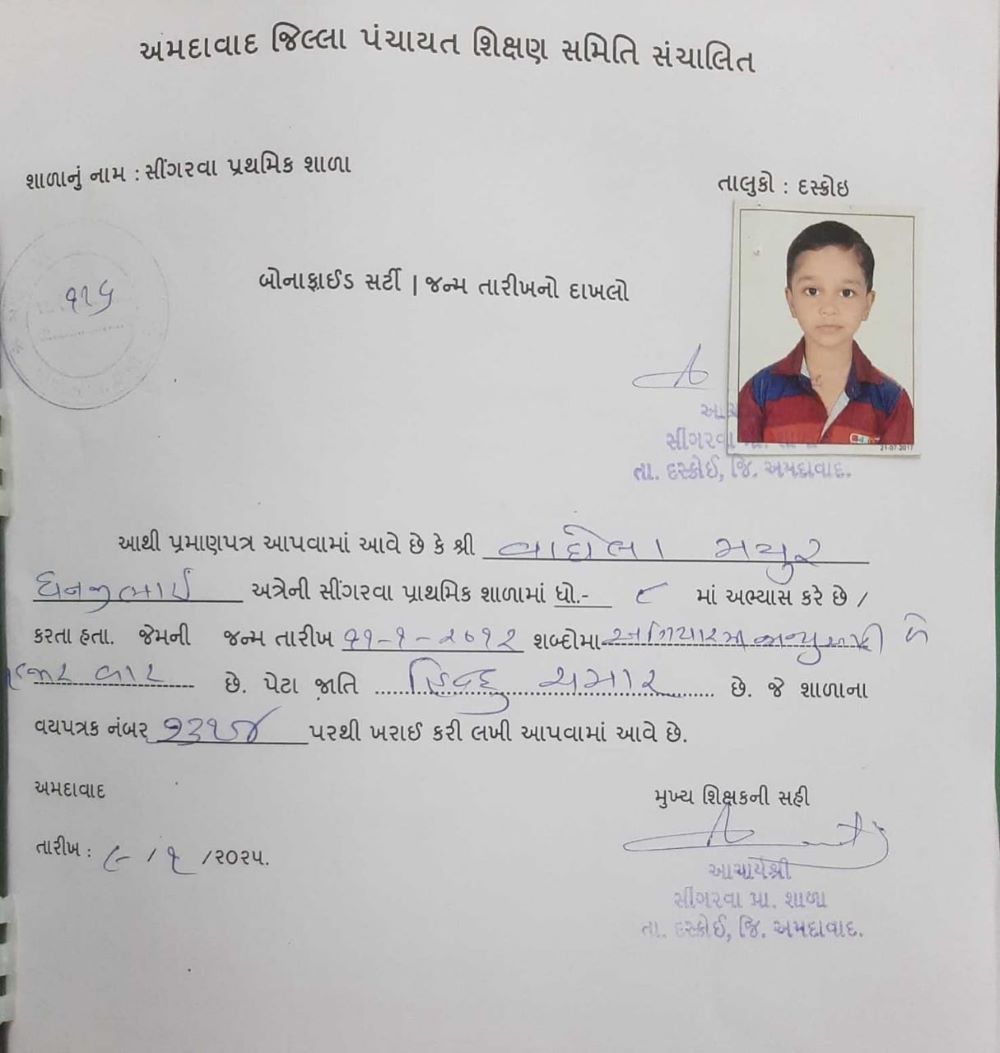 અમદાવાદ જિલ્લા પંચાયત શિક્ષણ સમિતિ સંચાલિત
શાળાનું નામ : સીંગરવા પ્રથમિક શાળા
તાલુકો : દસ્ક્રોઇ
૧૨૬
બોનાફાઈડ સર્ટી | જન્મ તારીખનો દાખલો
સીંગરવા
તા. દસ્ક્રોઈ, જિ. અમદાવાદ.
21-07-2017
આથી પ્રમાણપત્ર આપવામાં આવે છે કે શ્રી વાઘેલા મયુર
ધનજીભાઈ અત્રેની સીંગરવા પ્રાથમિક શાળામાં ધો.- ૮ માં અભ્યાસ કરે છે /
કરતા હતા. જેમની જન્મ તારીખ ૧૧-૧-૨૦૧૨ શબ્દોમા અગિયારમી જાન્યુઆરી બે
હજાર બાર છે. પેટા જાતિ હિન્દુ ચમાર છે. જે શાળાના
વયપત્રક નંબર પરથી ખરાઈ કરી લખી આપવામાં આવે છે.
અમદાવાદ
મુખ્ય શિક્ષકની સહી
તારીખ : ૯ / ૧ /૨૦૨૫.
આચાર્યશ્રી
સીંગરવા પ્રા. શાળા
તા. દસ્ક્રોઈ, જિ. અમદાવાદ.